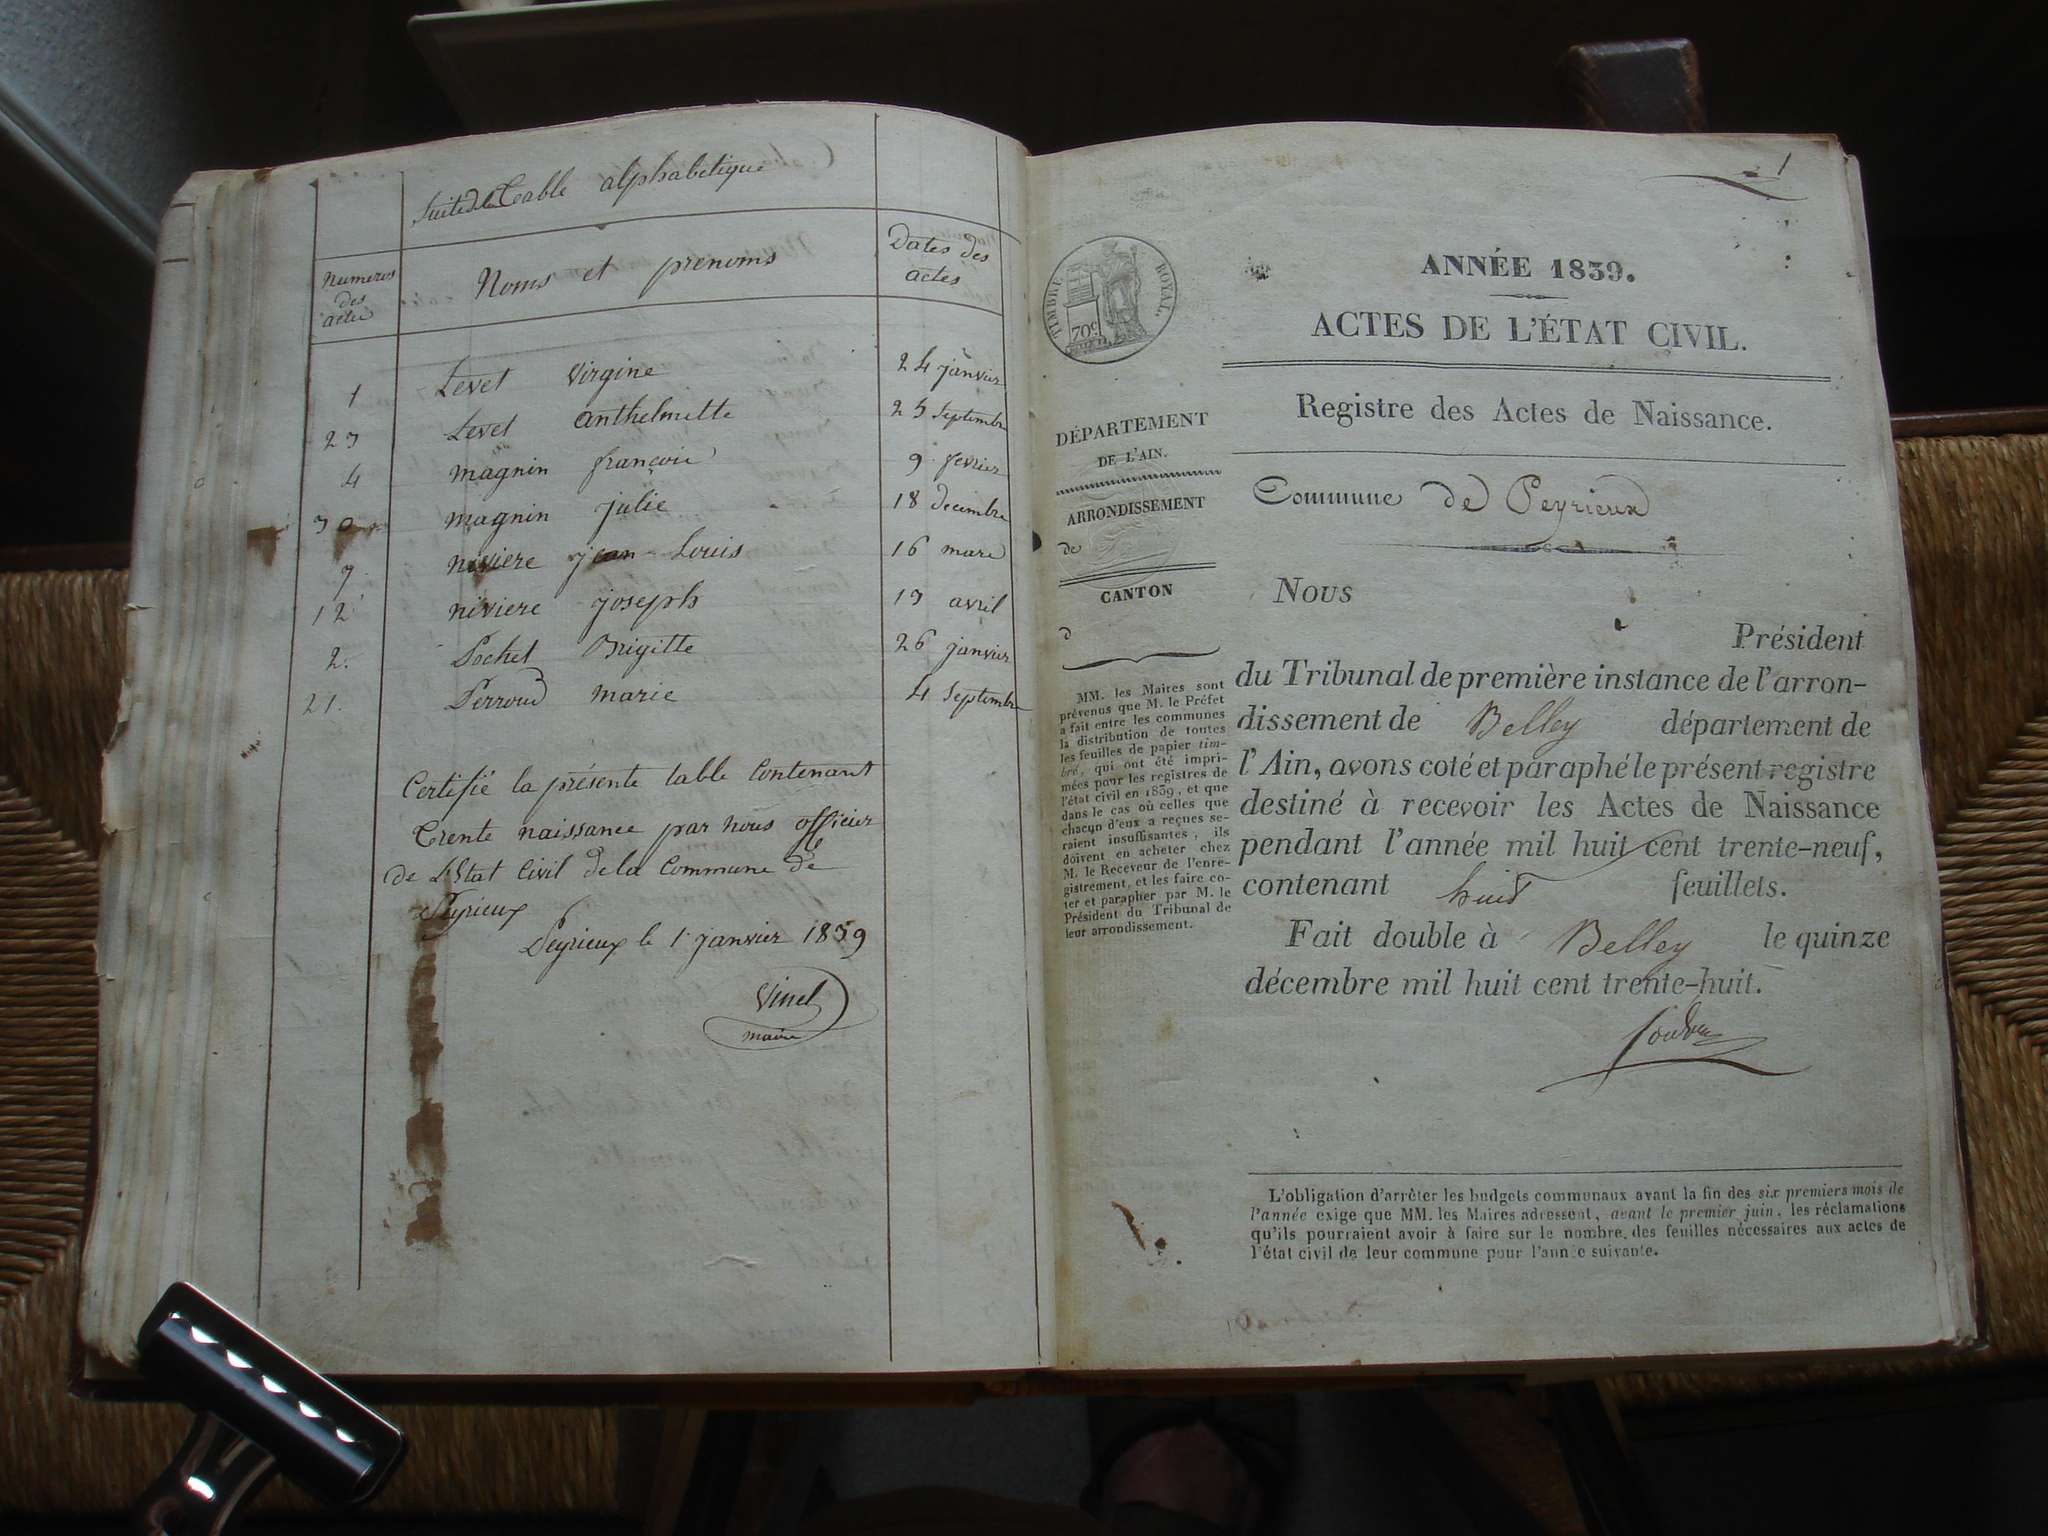 Suite de la Table alphabetique
Numeros des actes
Noms et prenoms
Dates des actes
1 Levet Virgine 24 janvier
23 Levet anthelmette 25 Septembre
4 magnin françois 9 fevrier
30 magnin julie 18 decembre
7 niviere jean Louis 16 mars
12 niviere joseph 13 avril
2. Pochet Brigitte 26 janvier
21. Perroud marie 4 Septembre
Certifié la présente table Contenant
Trente naissance par nous officier
de L'Etat Civil de la Commune de
Peyrieux
Peyrieux le 1 janvier 1839
Vinet
maire
1
TIMBRE ROYAL
70c
ANNÉE 1839.
ACTES DE L'ÉTAT CIVIL.
Registre des Actes de Naissance.
DÉPARTEMENT
DE L'AIN.
ARRONDISSEMENT
de
CANTON
d
MM. les Maires sont
prévenus que M. le Préfet
a fait entre les communes
la distribution de toutes
les feuilles de papier tim-
bré, qui ont été impri-
mées pour les registres de
l'état civil en 1839, et que
dans le cas où celles que
chacun d'eux a reçues se-
raient insuffisantes, ils
doivent en acheter chez
M. le Receveur de l'enre-
gistrement, et les faire co-
ter et parapher par M. le
Président du Tribunal de
leur arrondissement.
Commune de Peyrieux
Nous
Président
du Tribunal de première instance de l'arron-
dissement de Belley département de
l'Ain, avons coté et paraphé le présent registre
destiné à recevoir les Actes de Naissance
pendant l'année mil huit cent trente-neuf,
contenant huit feuillets.
Fait double à Belley le quinze
décembre mil huit cent trente-huit.
L'obligation d'arrêter les budgets communaux avant la fin des six premiers mois de
l'année exige que MM. les Maires adressent, avant le premier juin, les réclamations
qu'ils pourraient avoir à faire sur le nombre des feuilles nécessaires aux actes de
l'état civil de leur commune pour l'année suivante.